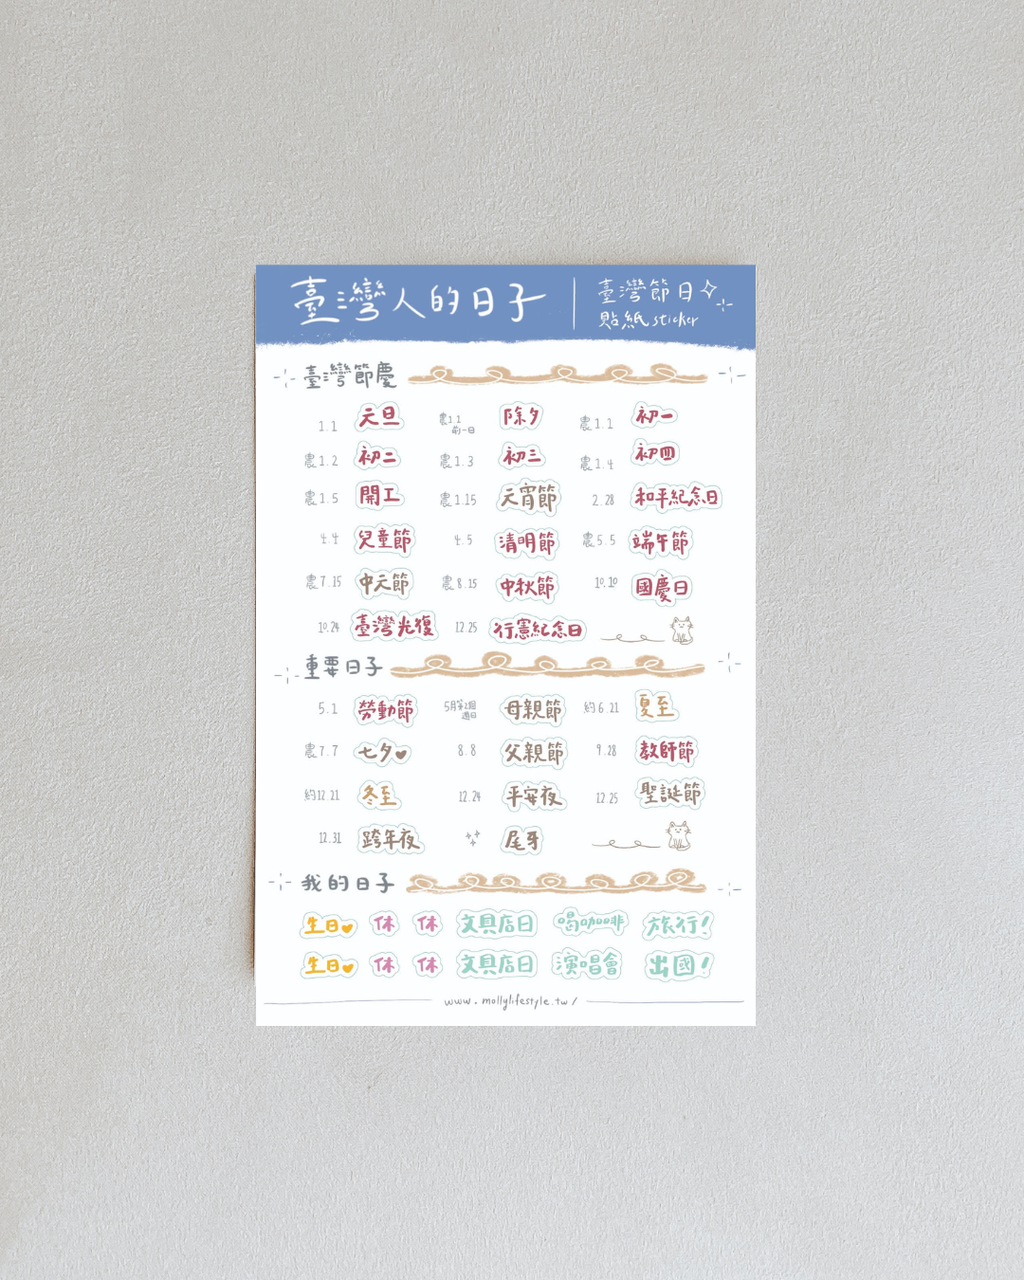 臺灣人的日子
臺灣節日
貼紙 sticker
臺灣節慶
1.1 元旦 農1.1前一日 除夕 農1.1 初一
農1.2 初二 農1.3 初三 農1.4 初四
農1.5 開工 農1.15 元宵節 2.28 和平紀念日
4.4 兒童節 4.5 清明節 農5.5 端午節
農7.15 中元節 農8.15 中秋節 10.10 國慶日
10.24 臺灣光復 12.25 行憲紀念日
重要日子
5.1 勞動節 5月第2個週日 母親節 約6.21 夏至
農7.7 七夕 8.8 父親節 9.28 教師節
約12.21 冬至 12.24 平安夜 12.25 聖誕節
12.31 跨年夜 尾牙
我的日子
生日 休 休 文具店日 喝咖啡 旅行!
生日 休 休 文具店日 演唱會 出國!
www.mollylifestyle.tw/